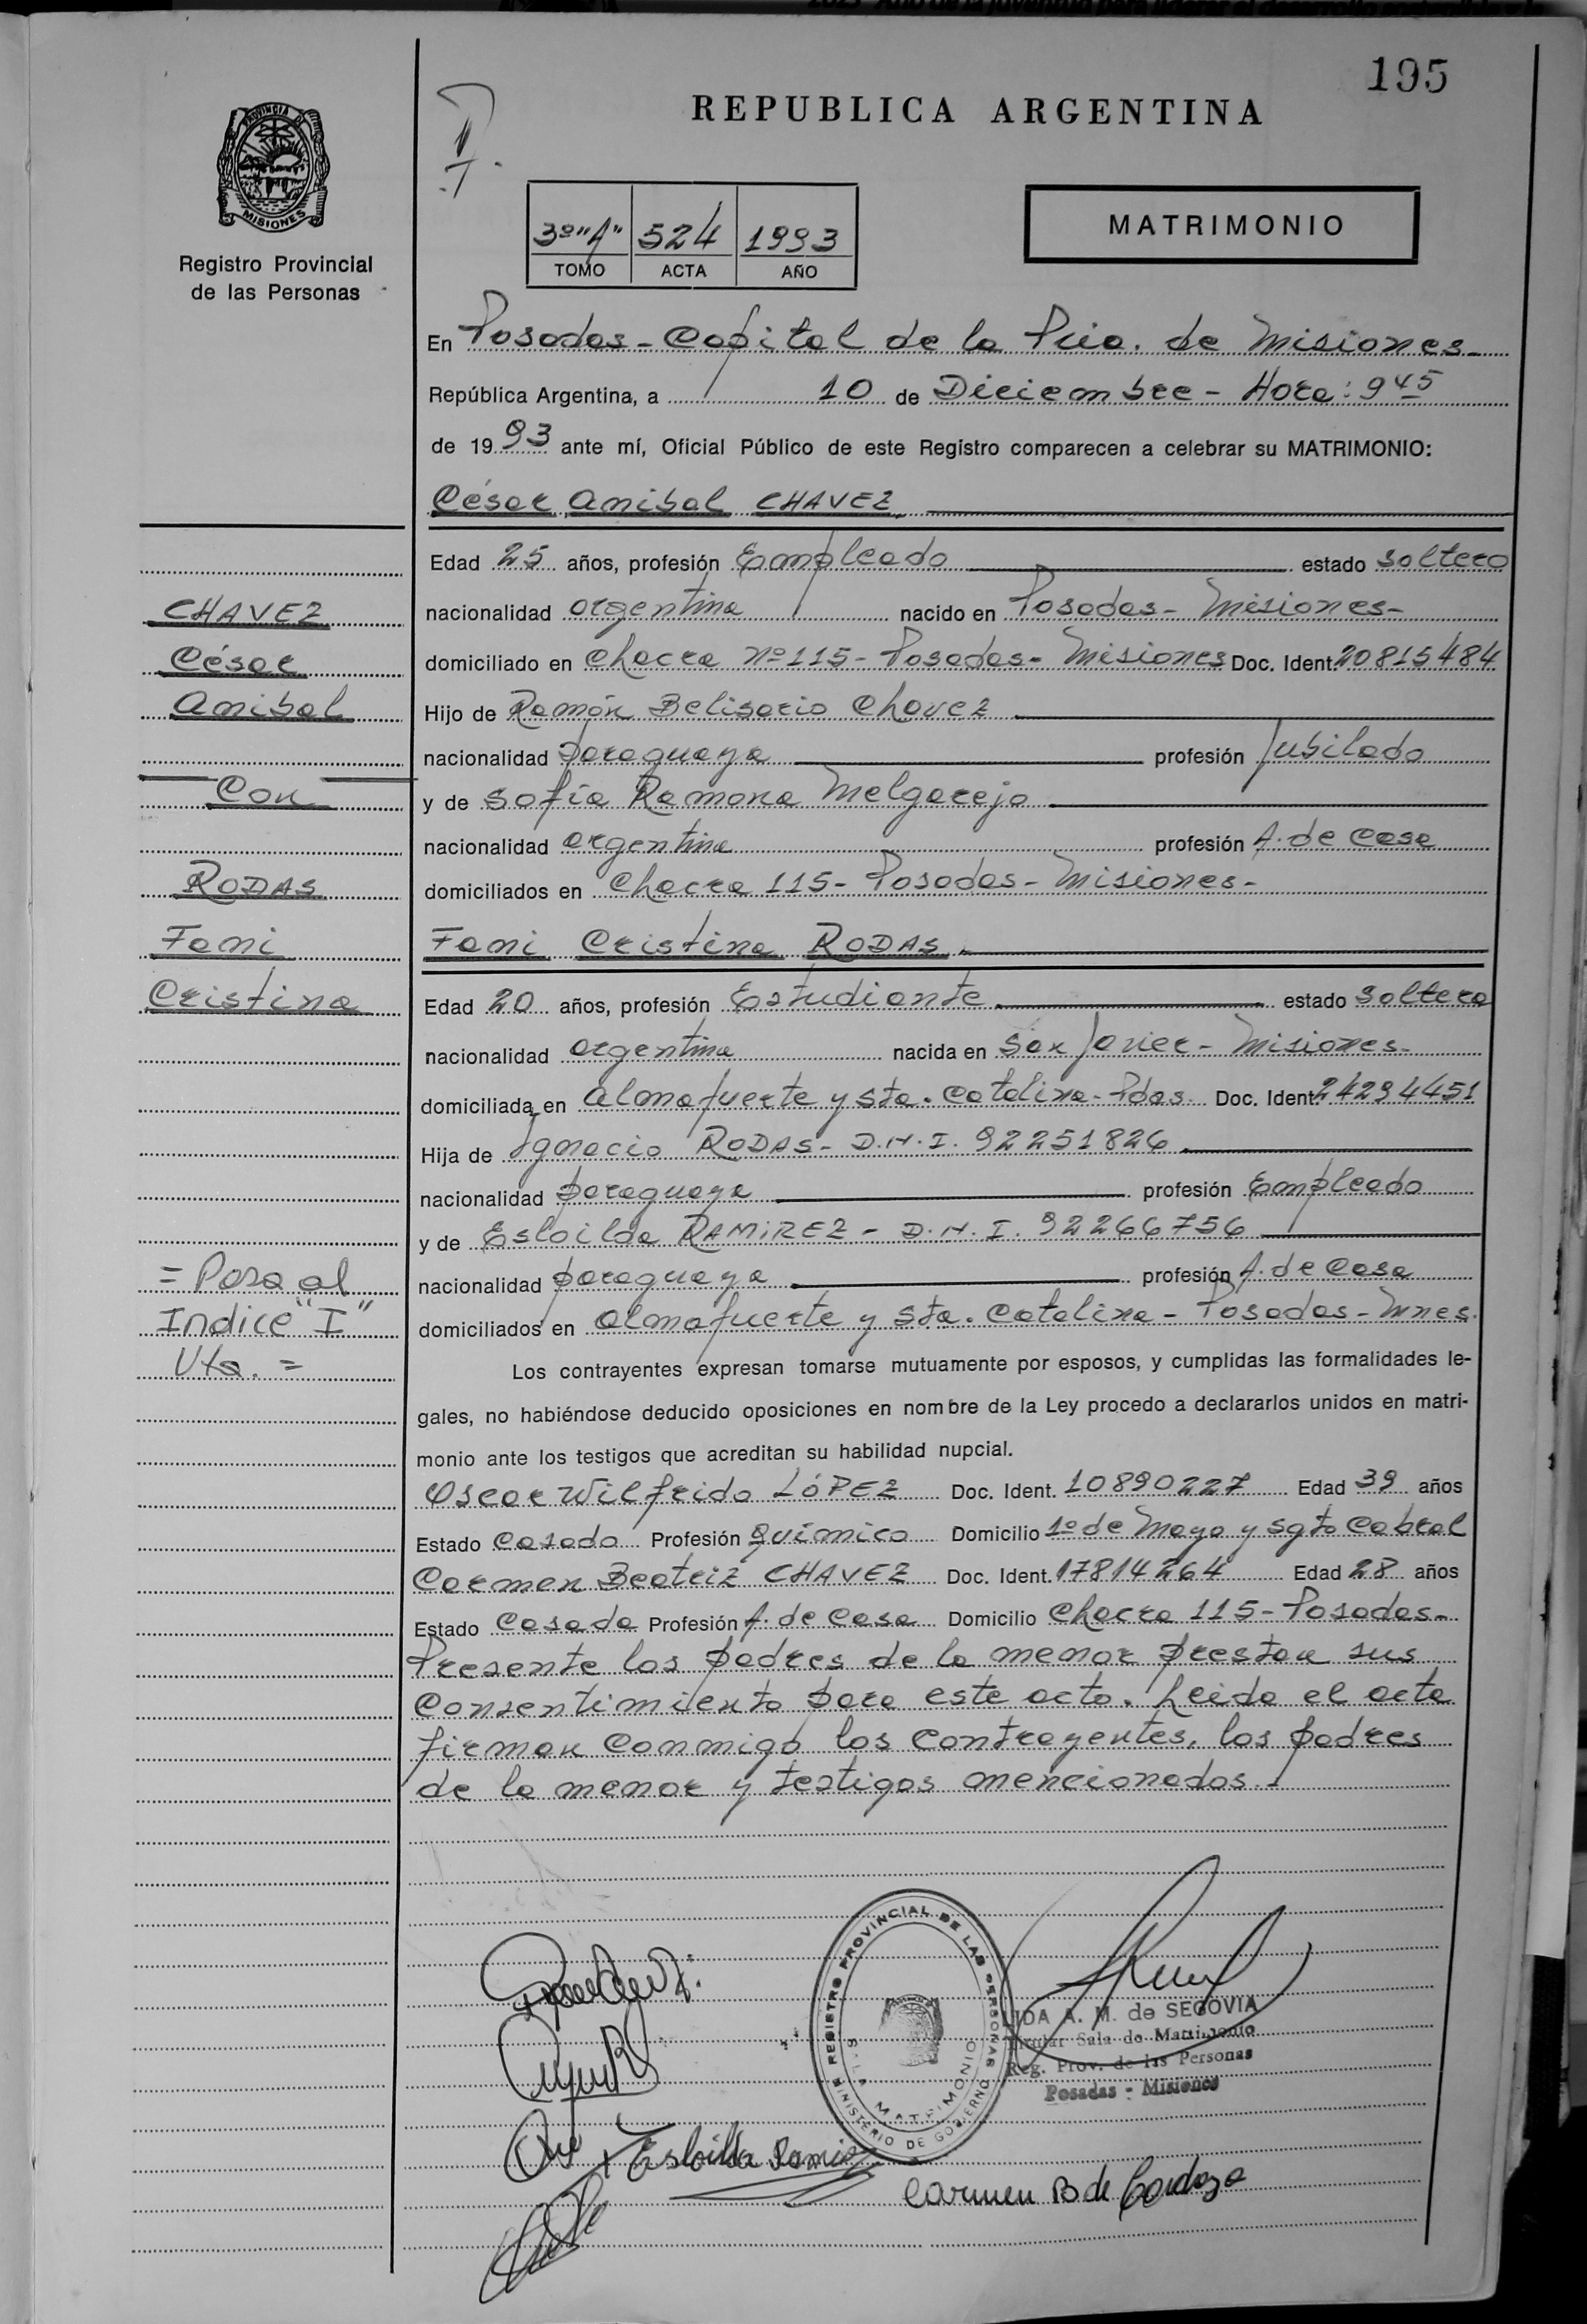 195
REPUBLICA ARGENTINA
PROVINCIA DE
MISIONES
Registro Provincial
de las Personas
3º "A" 524 1993
TOMO ACTA AÑO
MATRIMONIO
En Posadas - Capital de la Pcia. de Misiones -
República Argentina, a 10 de Diciembre - Hora: 9 45
de 1993 ante mí, Oficial Público de este Registro comparecen a celebrar su MATRIMONIO:
César Anibal CHAVEZ
Edad 25 años, profesión Empleado estado soltero
CHAVEZ
nacionalidad argentina nacido en Posadas - Misiones -
César
domiciliado en Chacra Nº 115 - Posadas - Misiones Doc. Ident. 20815484
Anibal
Hijo de Ramón Belisario Chavez
nacionalidad paraguaya profesión Jubilado
Con
y de Sofía Ramona Melgarejo
nacionalidad argentina profesión A. de Casa
RODAS
domiciliados en Chacra 115 - Posadas - Misiones -
Fani
Fani Cristina RODAS
Cristina
Edad 20 años, profesión Estudiante estado soltera
nacionalidad argentina nacida en San Javier - Misiones -
domiciliada en Almafuerte y Sta. Catalina - Pdas. Doc. Ident. 24294451
Hija de Ignacio RODAS - D.N.I. 92251826
nacionalidad paraguaya profesión Empleado
y de Esloilda RAMIREZ - D.N.I. 92266756
= Pasa al
nacionalidad paraguaya profesión A. de Casa
Indice "I"
domiciliados en Almafuerte y Sta. Catalina - Posadas - Mnes.
Vta. =
Los contrayentes expresan tomarse mutuamente por esposos, y cumplidas las formalidades le-
gales, no habiéndose deducido oposiciones en nombre de la Ley procedo a declararlos unidos en matri-
monio ante los testigos que acreditan su habilidad nupcial.
Oscar Wilfrido LÓPEZ Doc. Ident. 10890227 Edad 39 años
Estado Casado Profesión Químico Domicilio 1º de Mayo y Sgto Cabral
Carmen Beatriz CHAVEZ Doc. Ident. 17814264 Edad 28 años
Estado Casada Profesión A. de Casa Domicilio Chacra 115 - Posadas -
Presente los padres de la menor prestan sus
Consentimiento para este acto. Leida el acta
firman conmigo los contrayentes, los padres
de la menor y testigos mencionados.
REGISTRO PROVINCIAL DE LAS PERSONAS
MINISTERIO DE GOBIERNO
MATRIMONIO
A. M. de SEGOVIA
Titular Sala de Matrimonio
Reg. Prov. de las Personas
Posadas - Misiones
Esloilda
Carmen B de Cardozo